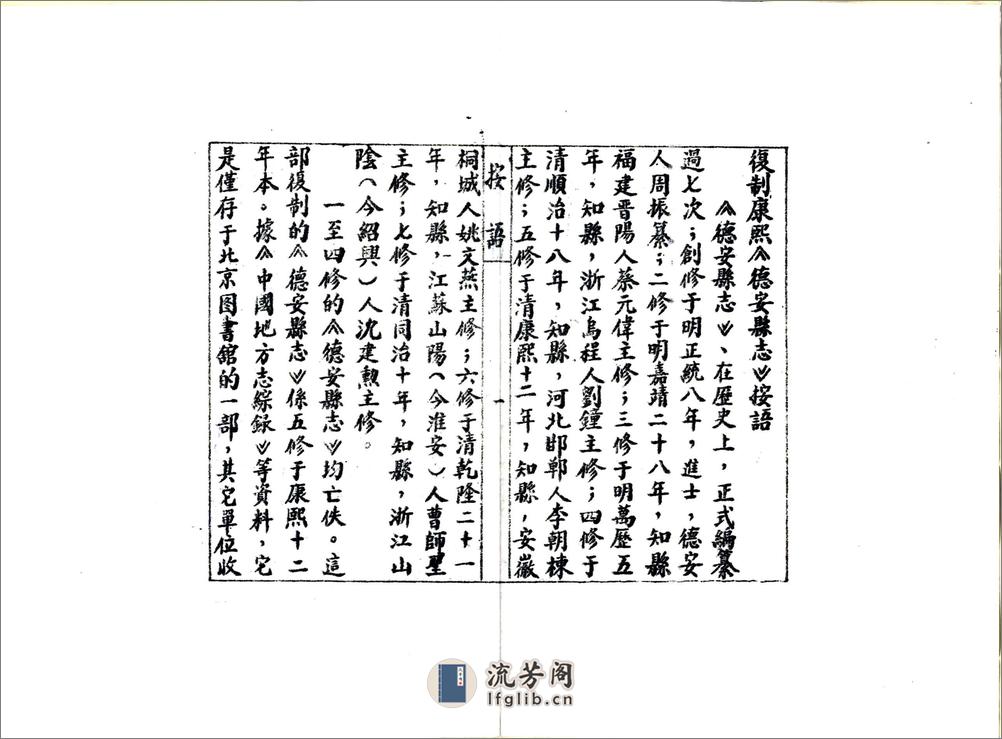 復制康熙《德安縣志》按語
《德安縣志》、在歷史上，正式編纂
過七次；創修于明正統八年，進士，德安
人周振纂；二修于明嘉靖二十八年，知縣
福建晋陽人蔡元偉主修；三修于明萬歷五
年，知縣，浙江烏程人劉鐘主修；四修于
清順治十八年，知縣，河北邯郸人李朝棟
主修；五修于清康熙十二年，知縣，安徽
按語
一
桐城人姚文燕主修；六修于清乾隆二十一
年，知縣，江蘇山陽（今淮安）人曹師聖
主修；七修于清同治十年，知縣，浙江山
陰（今紹興）人沈建勲主修。
一至四修的《德安縣志》均亡佚。這
部復制的《德安縣志》係五修于康熙十二
年本。據《中國地方志綜録》等資料，它
是僅存于北京图書舘的一部，其它單位收
流芳阁
lfglib.cn